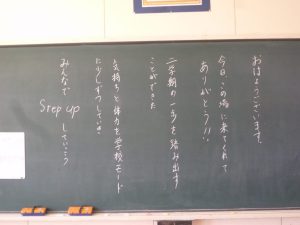 おはようございます。
今日、この場に来てくれて
ありがとう!!
二学期の一歩を踏み出す
ことができた
気持ちと体力を学校モード
に少しずつしていき
みんなで Step up していこう